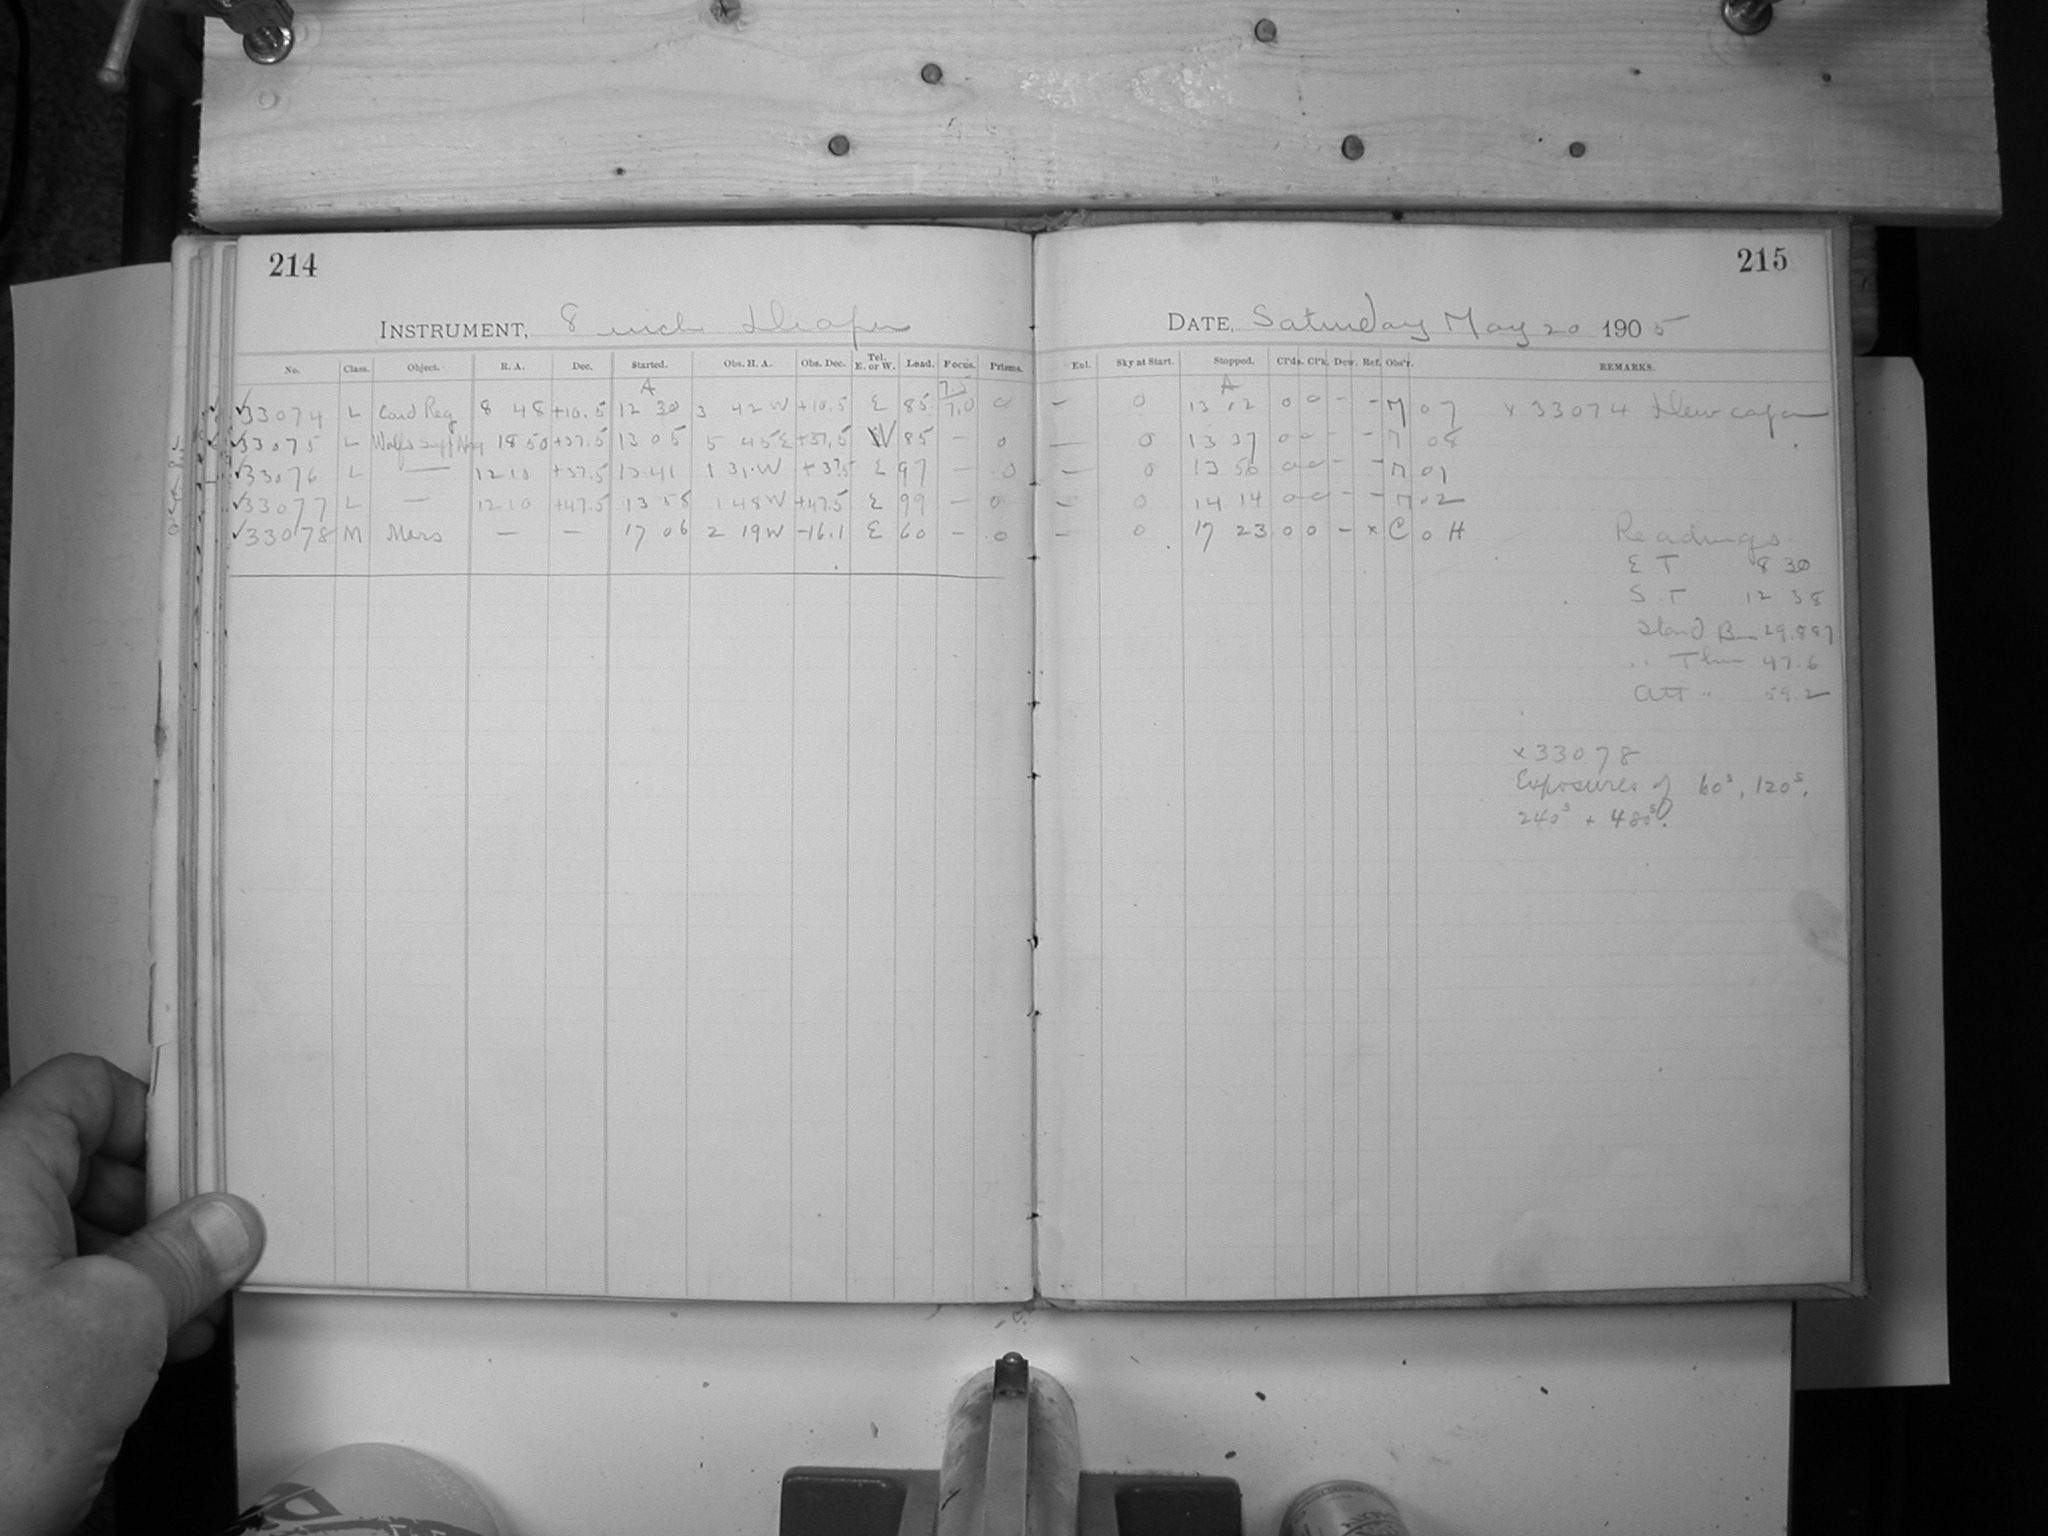 214
INSTRUMENT, 8 inch Draper
No. Class. Object. R. A. Dec. Started. Obs. H. A. Obs. Dec. Tel. E. or W. Lead. Focus. Prisms.
A 7.5
✓33074 L Cand Reg 8 48 +10.5 12 30 3 42 W +10.5 E 85 7.0 0
✓33075 L 18 50 +37.5 13 05 5 45 E +37.5 W 85 – 0
✓33076 L — 12 10 +37.5 13 41 1 31 W +37.5 E 97 – 0
✓33077 L — 12 10 +47.5 13 58 1 48 W +47.5 E 99 – 0
✓33078 M Mars — — 17 06 2 19 W –16.1 E 60 – 0
215
DATE, Saturday May 20 1905
Exl. Sky at Start. Stopped. Cl'ds. Cl'k. Dew. Ref. Obs'r. REMARKS.
A
– 0 13 02 0 0 – – M 07 x 33074 New cap on
— 0 13 37 0 0 – – M 08
— 0 13 56 0 0 – – M 01
– 0 14 14 0 0 – – M 02
– 0 17 23 0 0 – x C 0 H
Readings
E T 8 30
S. T 12 38
Stand Bar 29.887
" Ther 47.6
Att " 59.2
x 33078
Exposures of 60s, 120s,
240s + 480s.